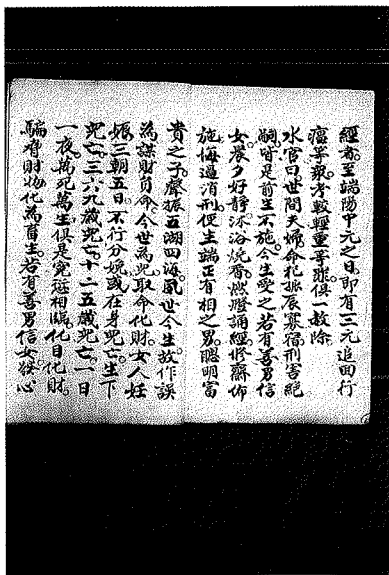 經者。至端陽中元之日。即有三元追面行
瘟等報。考較輕重等罪。俱一赦除。
水官曰世間夫婦。命犯孤辰寡宿刑害絕
嗣。皆是前生不施。今生受之。若有善男信
女。晨夕好靜。沐浴燒香。燃燈誦經。修齋佈
施。悔過消刑。便生端正有相之男。聰明富
貴之子。聲振五湖四海。夙世今生。故作誤
為。謀財負命。今世為兒取命化財。女人妊
娠。三朝五日。不行分娩。或在身死亡。生下
死亡。三六九歲死亡。十二五歲死亡。一日
一夜。萬死萬生。俱是冤愆相臨。化日化財。
騙得財物。化為畜生。若有善男信女發心